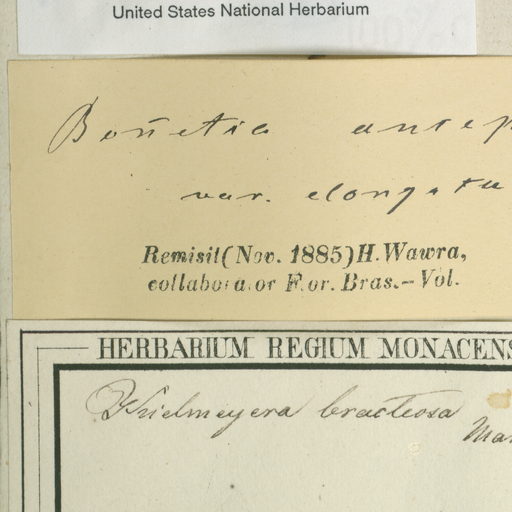 United States National Herbarium
Bonnetia ancep
var. elongata
Remisit (Nov. 1885) H. Wawra,
collaborator For. Bras. — Vol.
HERBARIUM REGIUM MONACENS
Kielmeyera bracteosa
Mar